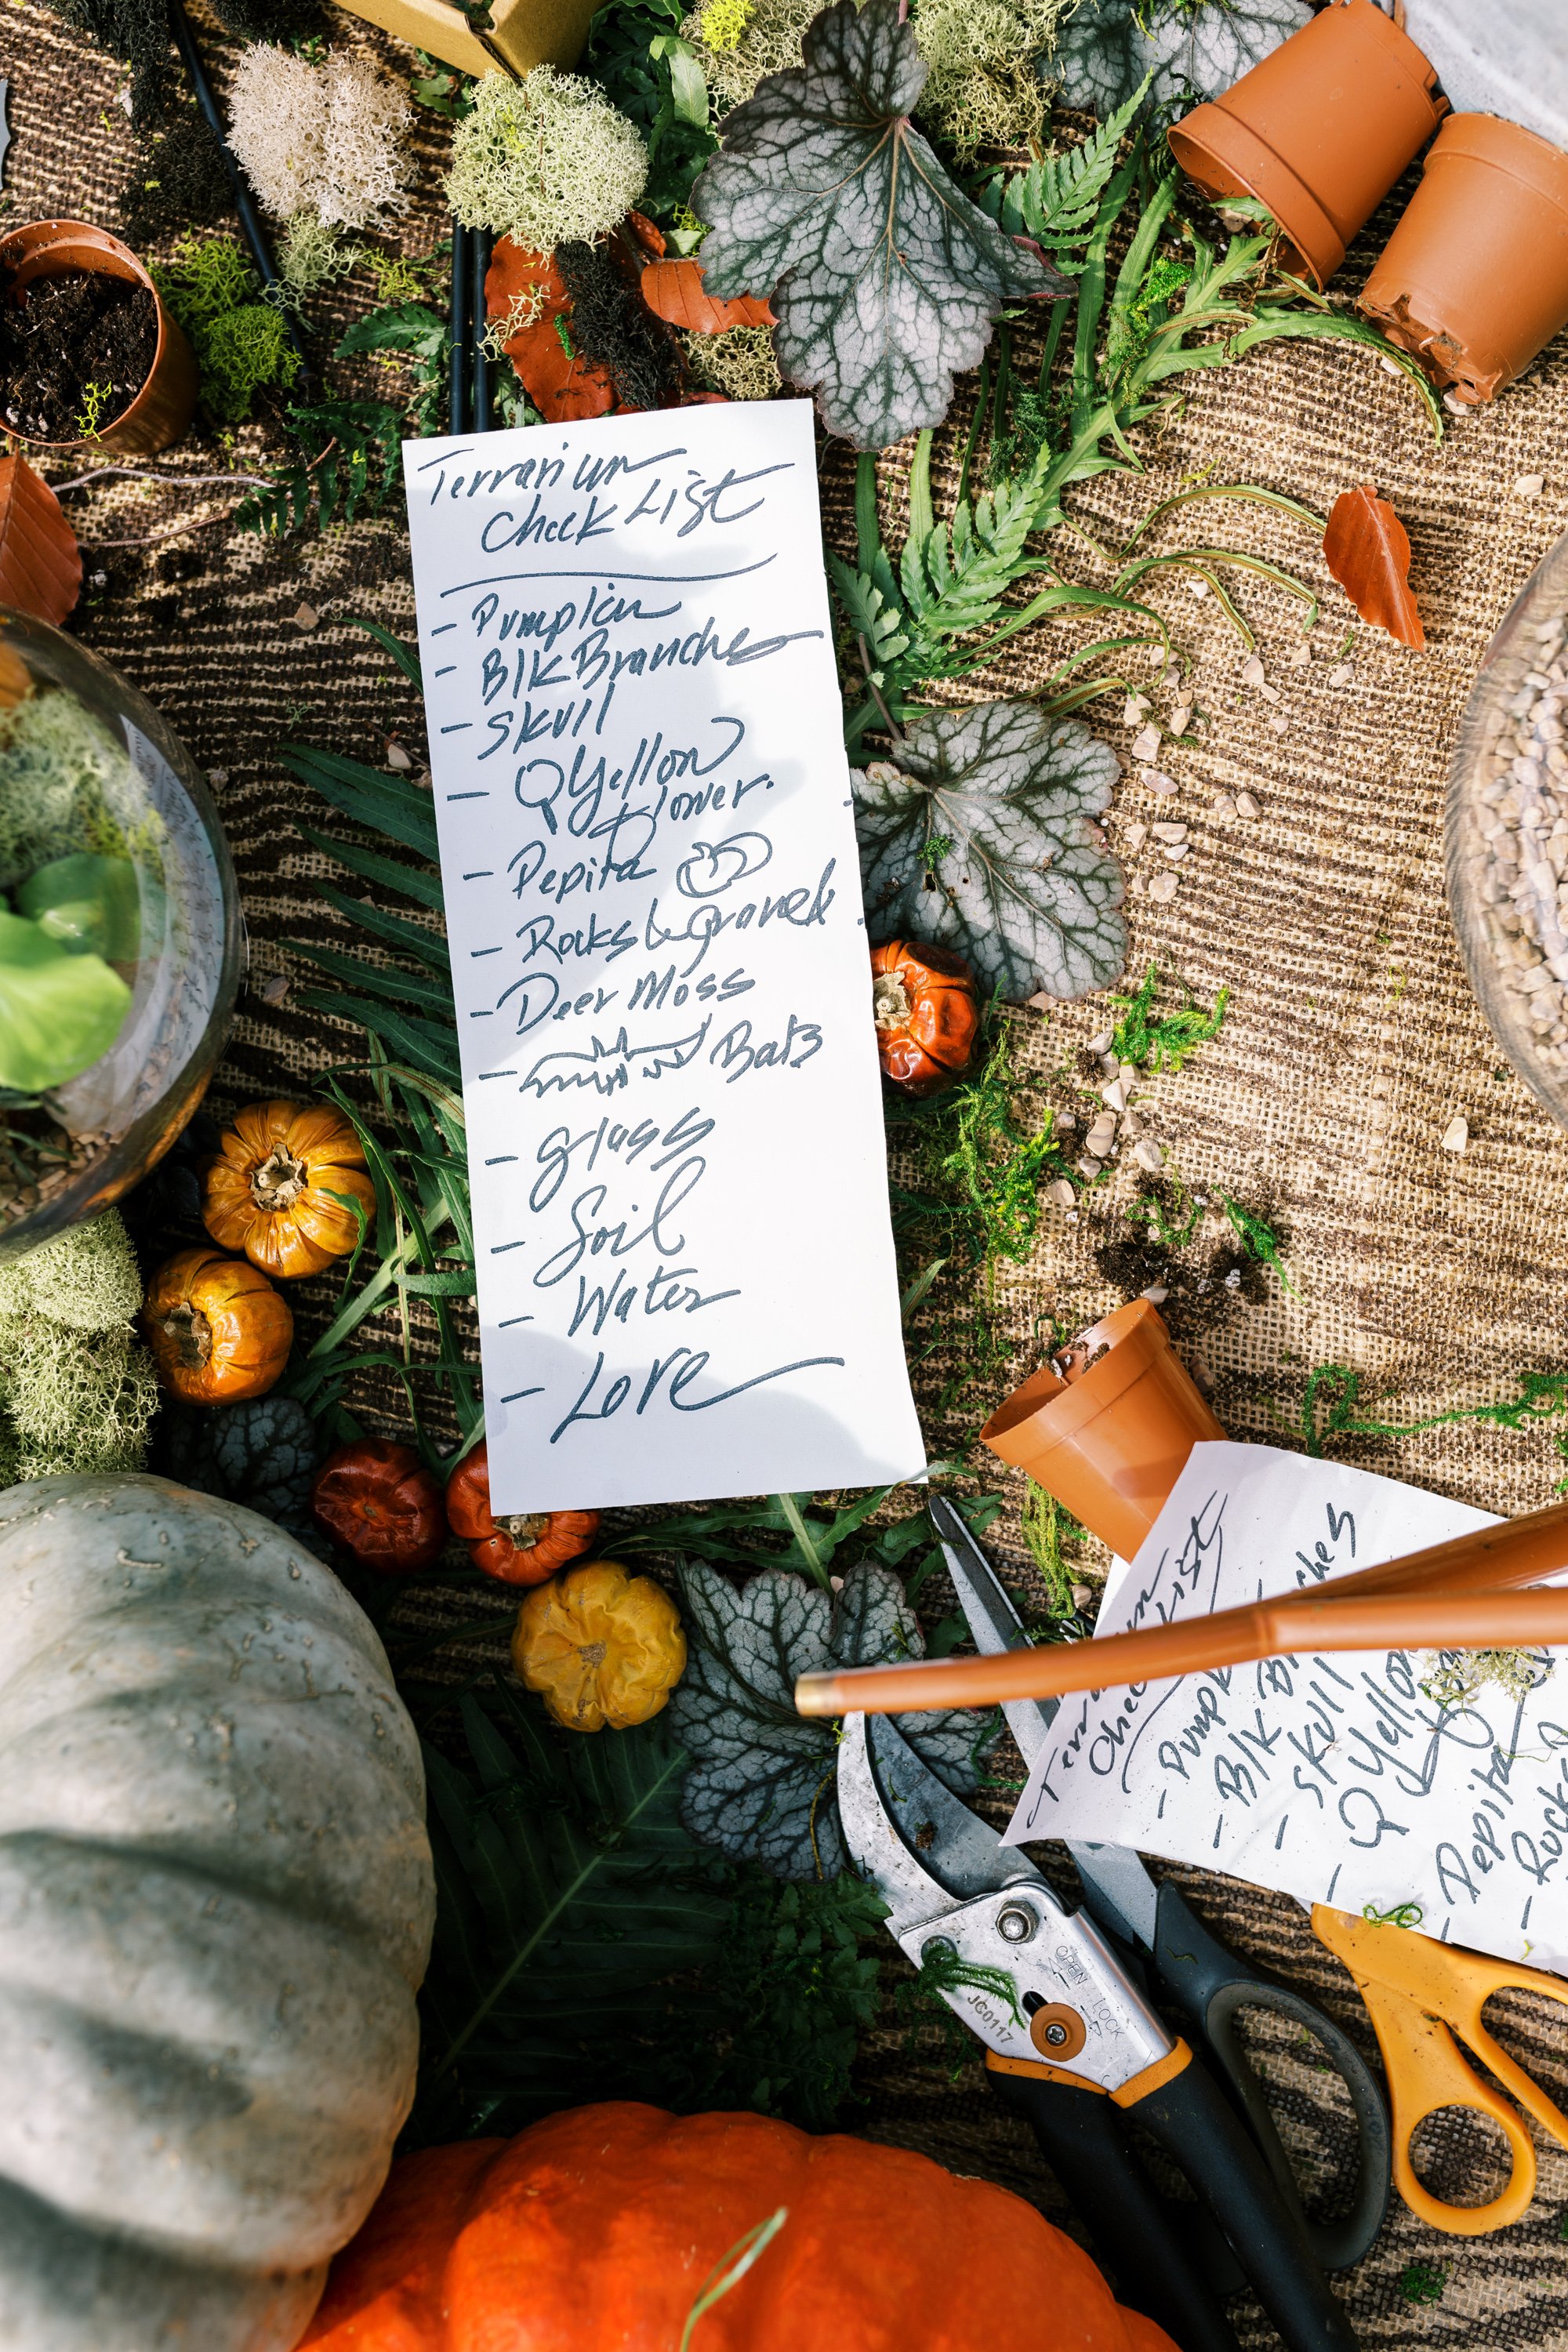 Terrarium
Check List
- Pumpkin
- Blk Branches
- Skull
- Yellow
Flower.
- Pepita
- Rocks & gravel
- Deer Moss
- Bats
- glass
- Soil
- Water
- Love
Check List
- Blk
- Skull
- Yellow
- Pepita
OPEN
LOCK
JC0117